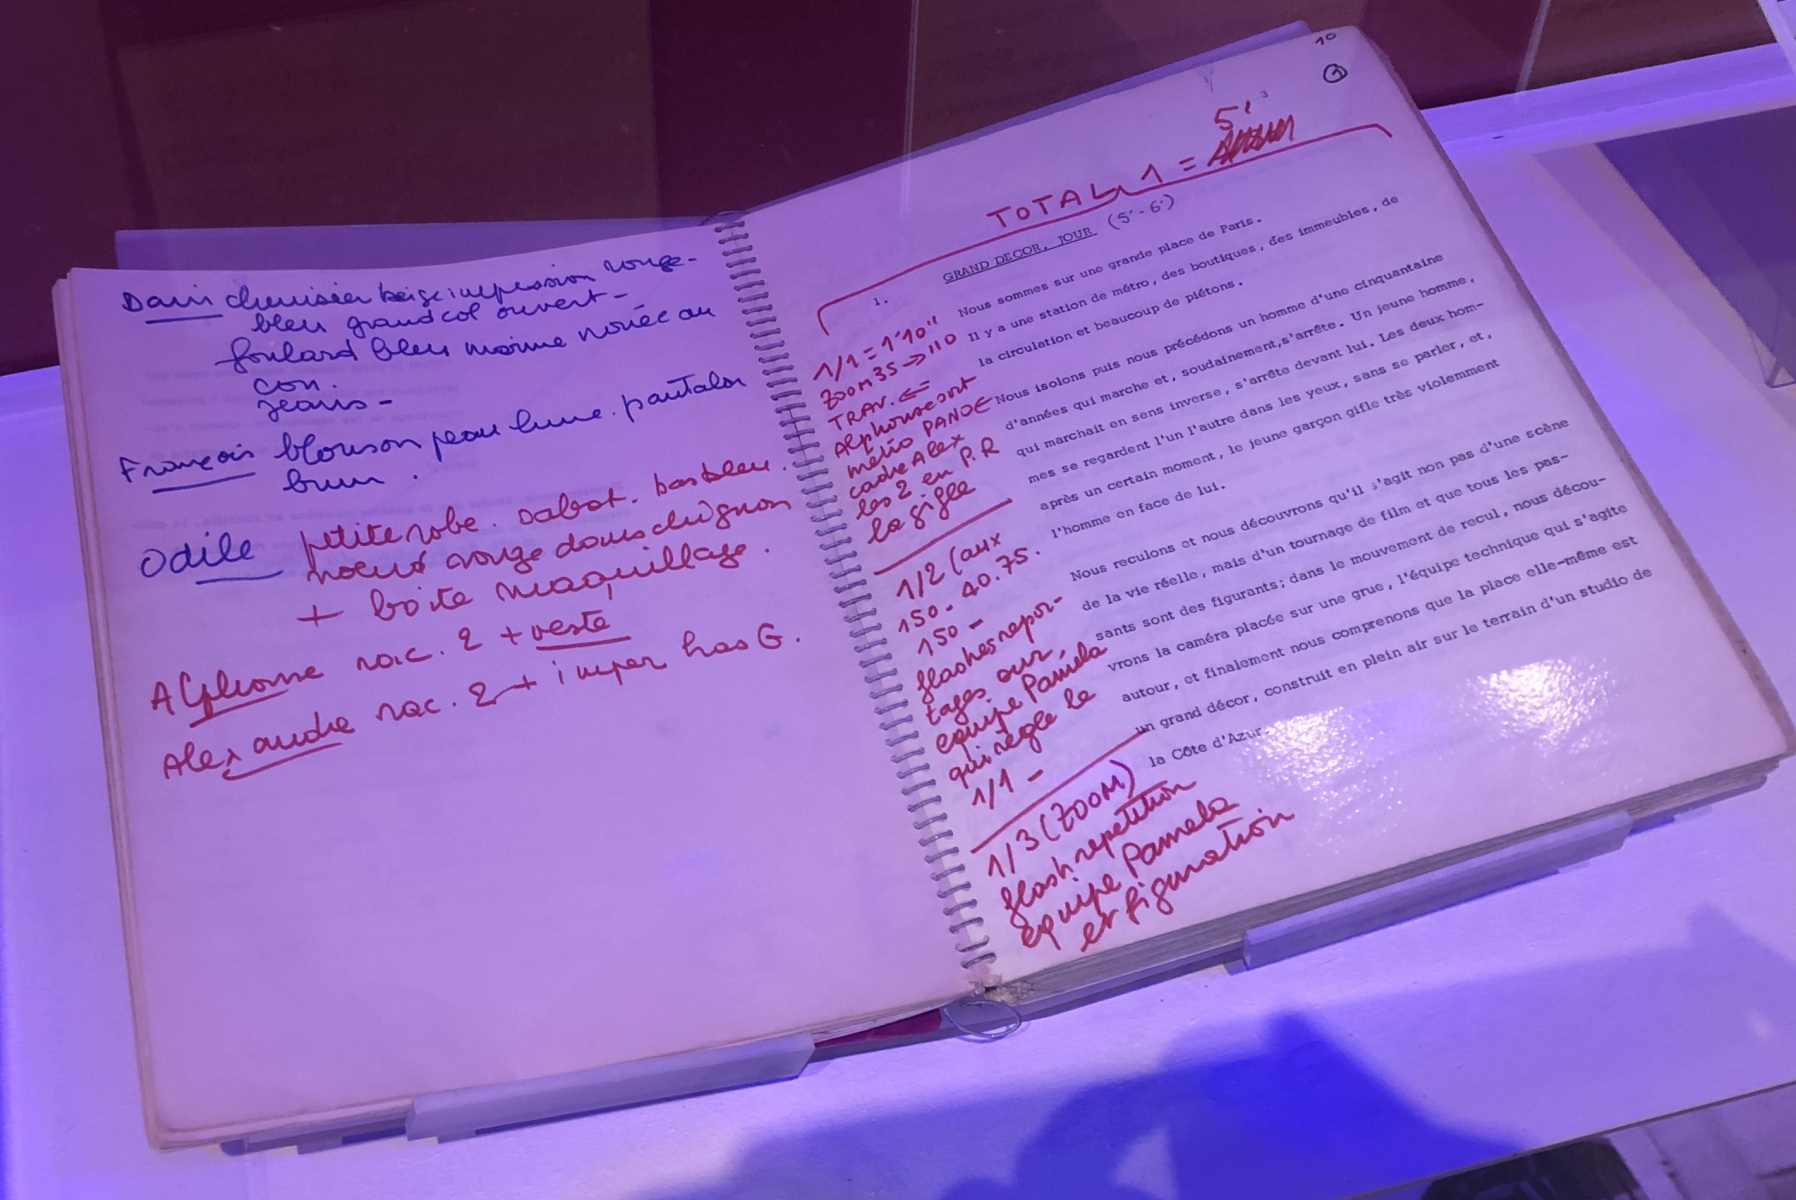 Dani chemisier beige impression rouge-
bleu grand col ouvert -
foulard bleu marine nouée au
cou.
jeans -
François blouson peau brune. pantalon
brun.
Odile petite robe. sabot. bas bleu.
noeud rouge dans chignon
+ boîte maquillage.
Alphonse rac. 2 + veste
Alexandre rac. 2 + imper
10
1
3
5'
TOTAL 1 =
GRAND DECOR, JOUR (5'-6')
1. Nous sommes sur une grande place de Paris.
Il y a une station de métro, des boutiques, des immeubles, de
la circulation et beaucoup de piétons.
Nous isolons puis nous précédons un homme d'une cinquantaine
d'années qui marche et, soudainement, s'arrête. Un jeune homme,
qui marchait en sens inverse, s'arrête devant lui. Les deux hom-
mes se regardent l'un l'autre dans les yeux, sans se parler, et,
après un certain moment, le jeune garçon gifle très violemment
l'homme en face de lui.
Nous reculons et nous découvrons qu'il s'agit non pas d'une scène
de la vie réelle, mais d'un tournage de film et que tous les pas-
sants sont des figurants; dans le mouvement de recul, nous décou-
vrons la caméra placée sur une grue, l'équipe technique qui s'agite
autour, et finalement nous comprenons que la place elle-même est
un grand décor, construit en plein air sur le terrain d'un studio de
la Côte d'Azur.
1/1 = 1'10"
ZOOM 35 → 110
TRAV. ⇐
Alphonse sort
métro PANO ←
cadre Alex
les 2 en P.R
la gifle
1/2 (aux
150 - 40.75.
150 -
flashes repor-
tages sur
équipe Pamela
qui règle le
1/1 -
1/3 (ZOOM)
flash repetition
équipe Pamela
et figuration